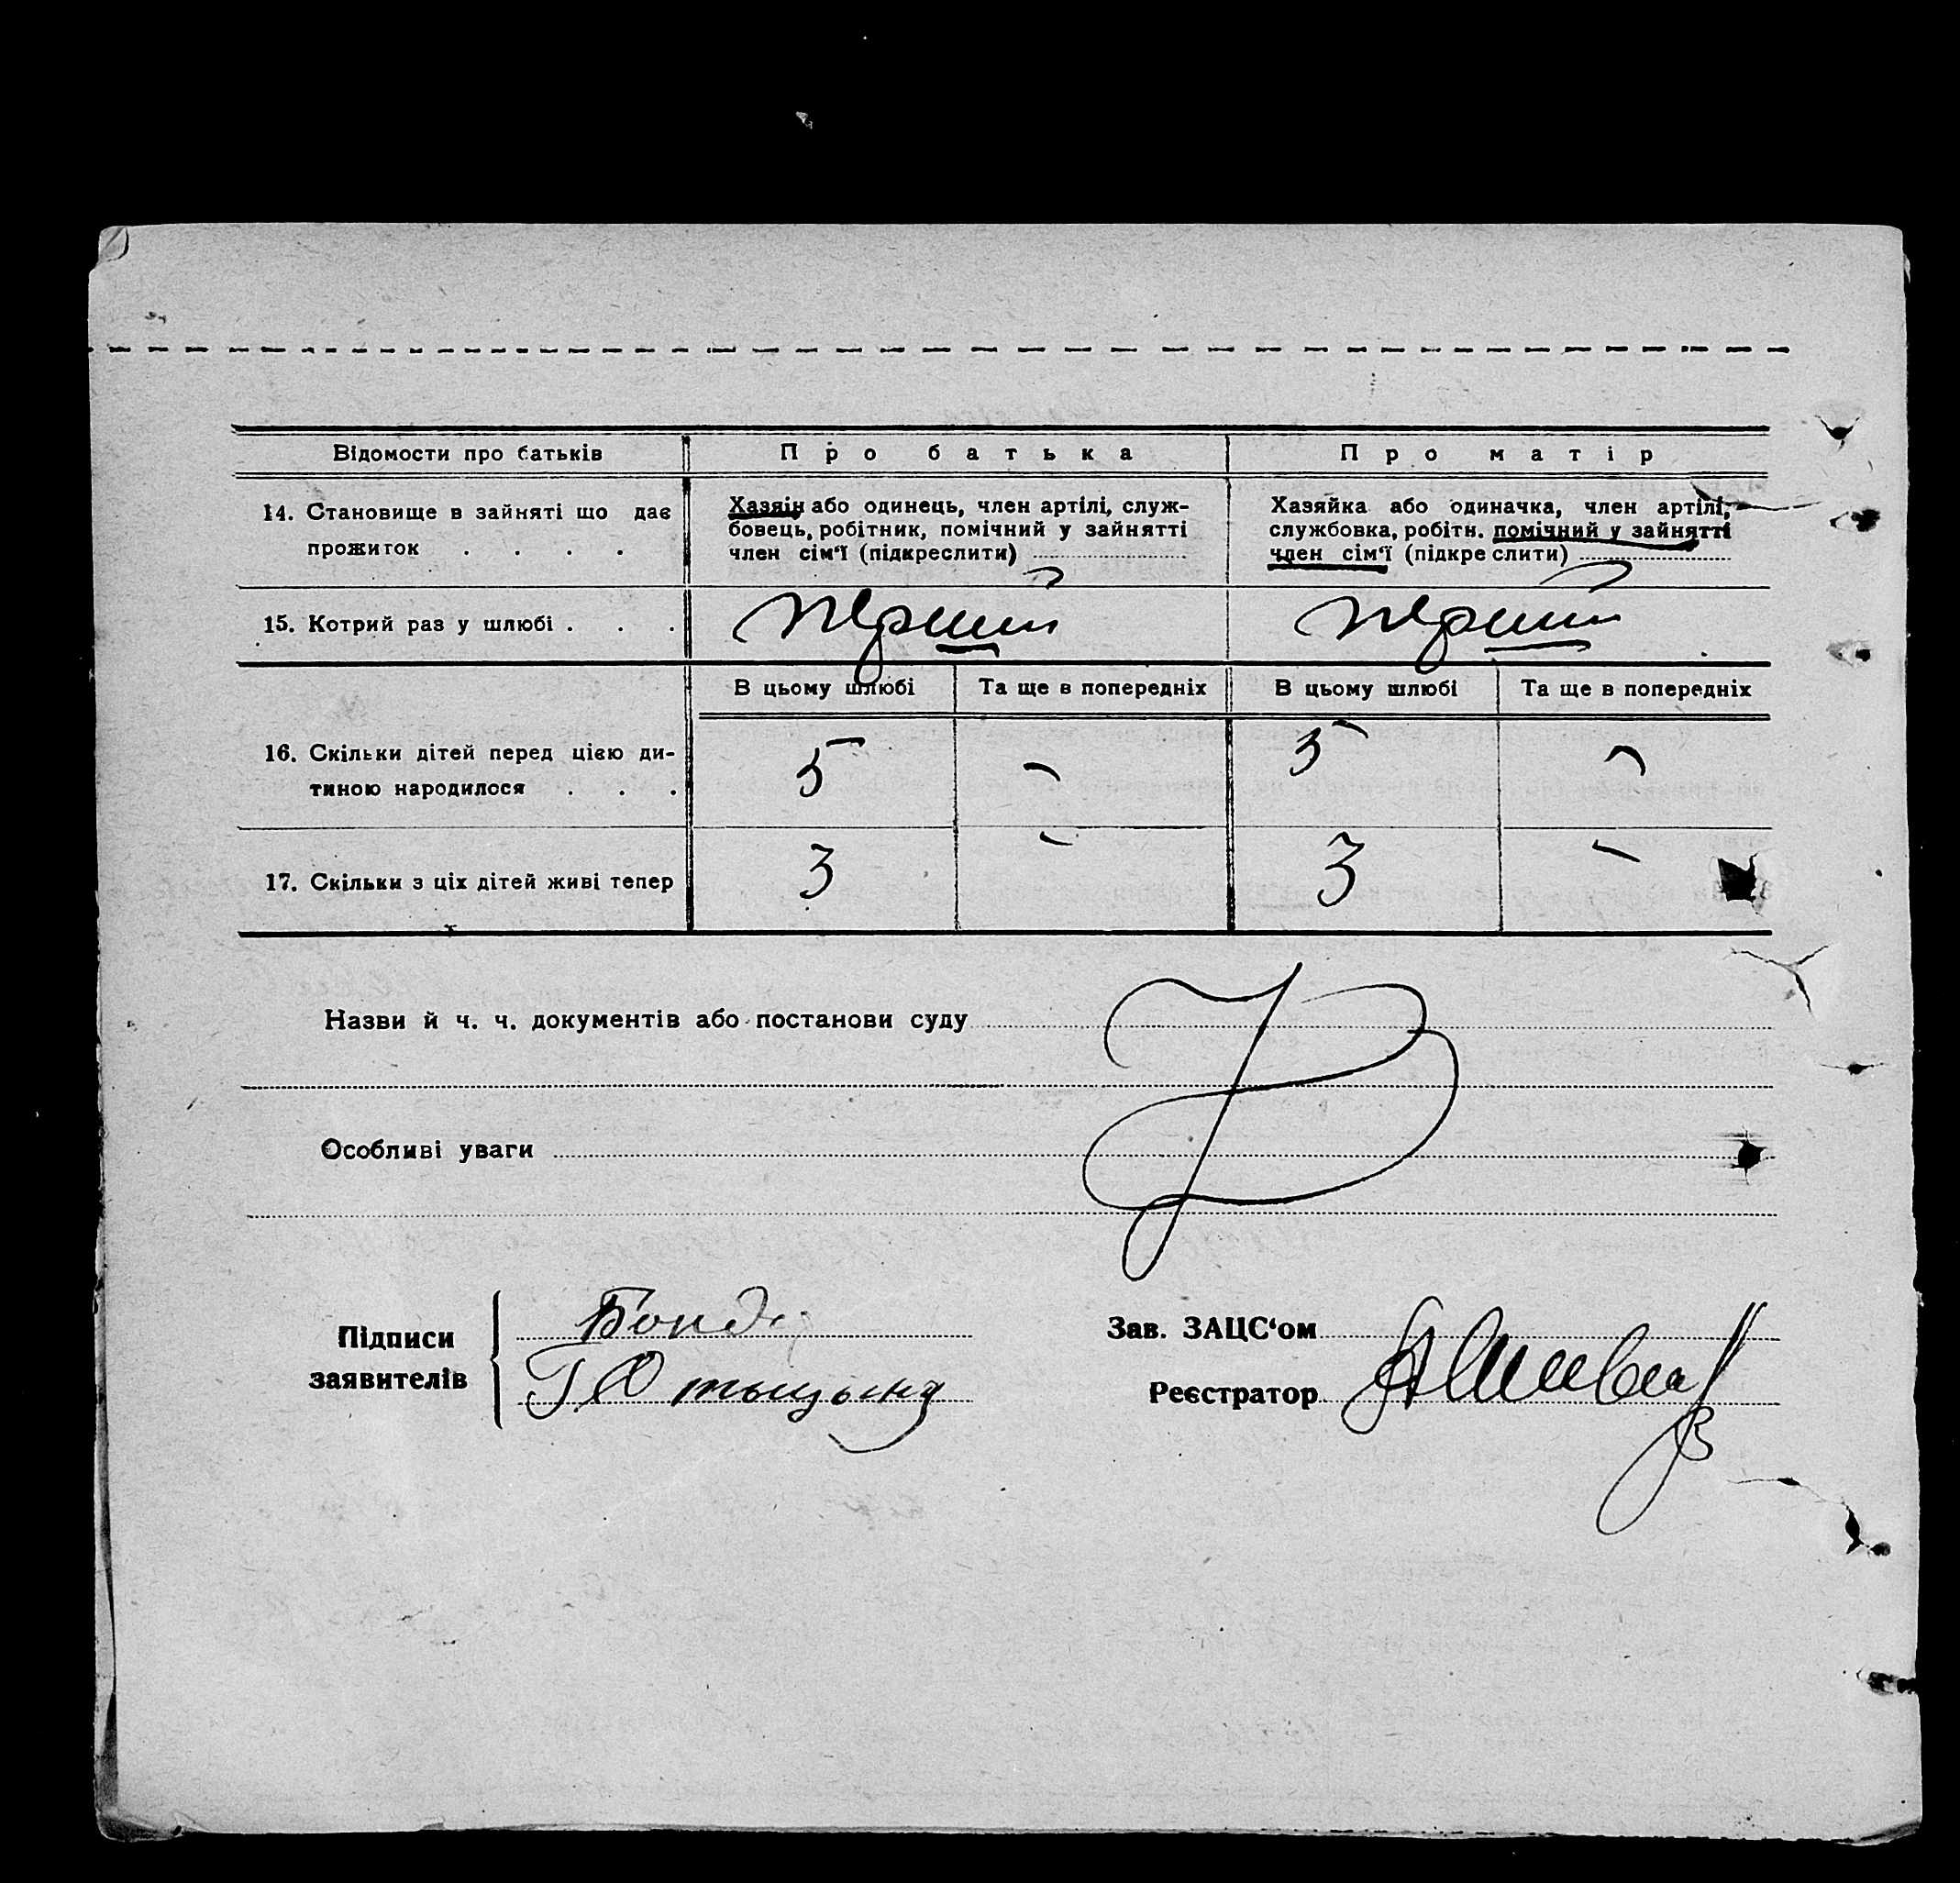 Відомости про батьків Про батька Про матір
14. Становище в зайняті що дає
прожиток . . . .
Хазяїн або одинець, член артілі, служ-
бовець, робітник, помічний у зайнятті
член сім'ї (підкреслити)
Хазяйка або одиначка, член артілі,
службовка, робітн. помічний у зайнятті
член сім'ї (підкре слити)
15. Котрий раз у шлюбі . . . перший перший
В цьому шлюбі Та ще в попередніх В цьому шлюбі Та ще в попередніх
16. Скільки дітей перед цією ди-
тиною народилося . . .
5 - 5 -
17. Скільки з ціх дітей живі тепер 3 - 3 -
Назви й ч. ч. документів або постанови суду
Особливі уваги
Підписи
заявителів
Зав. ЗАЦС'ом
Реєстратор